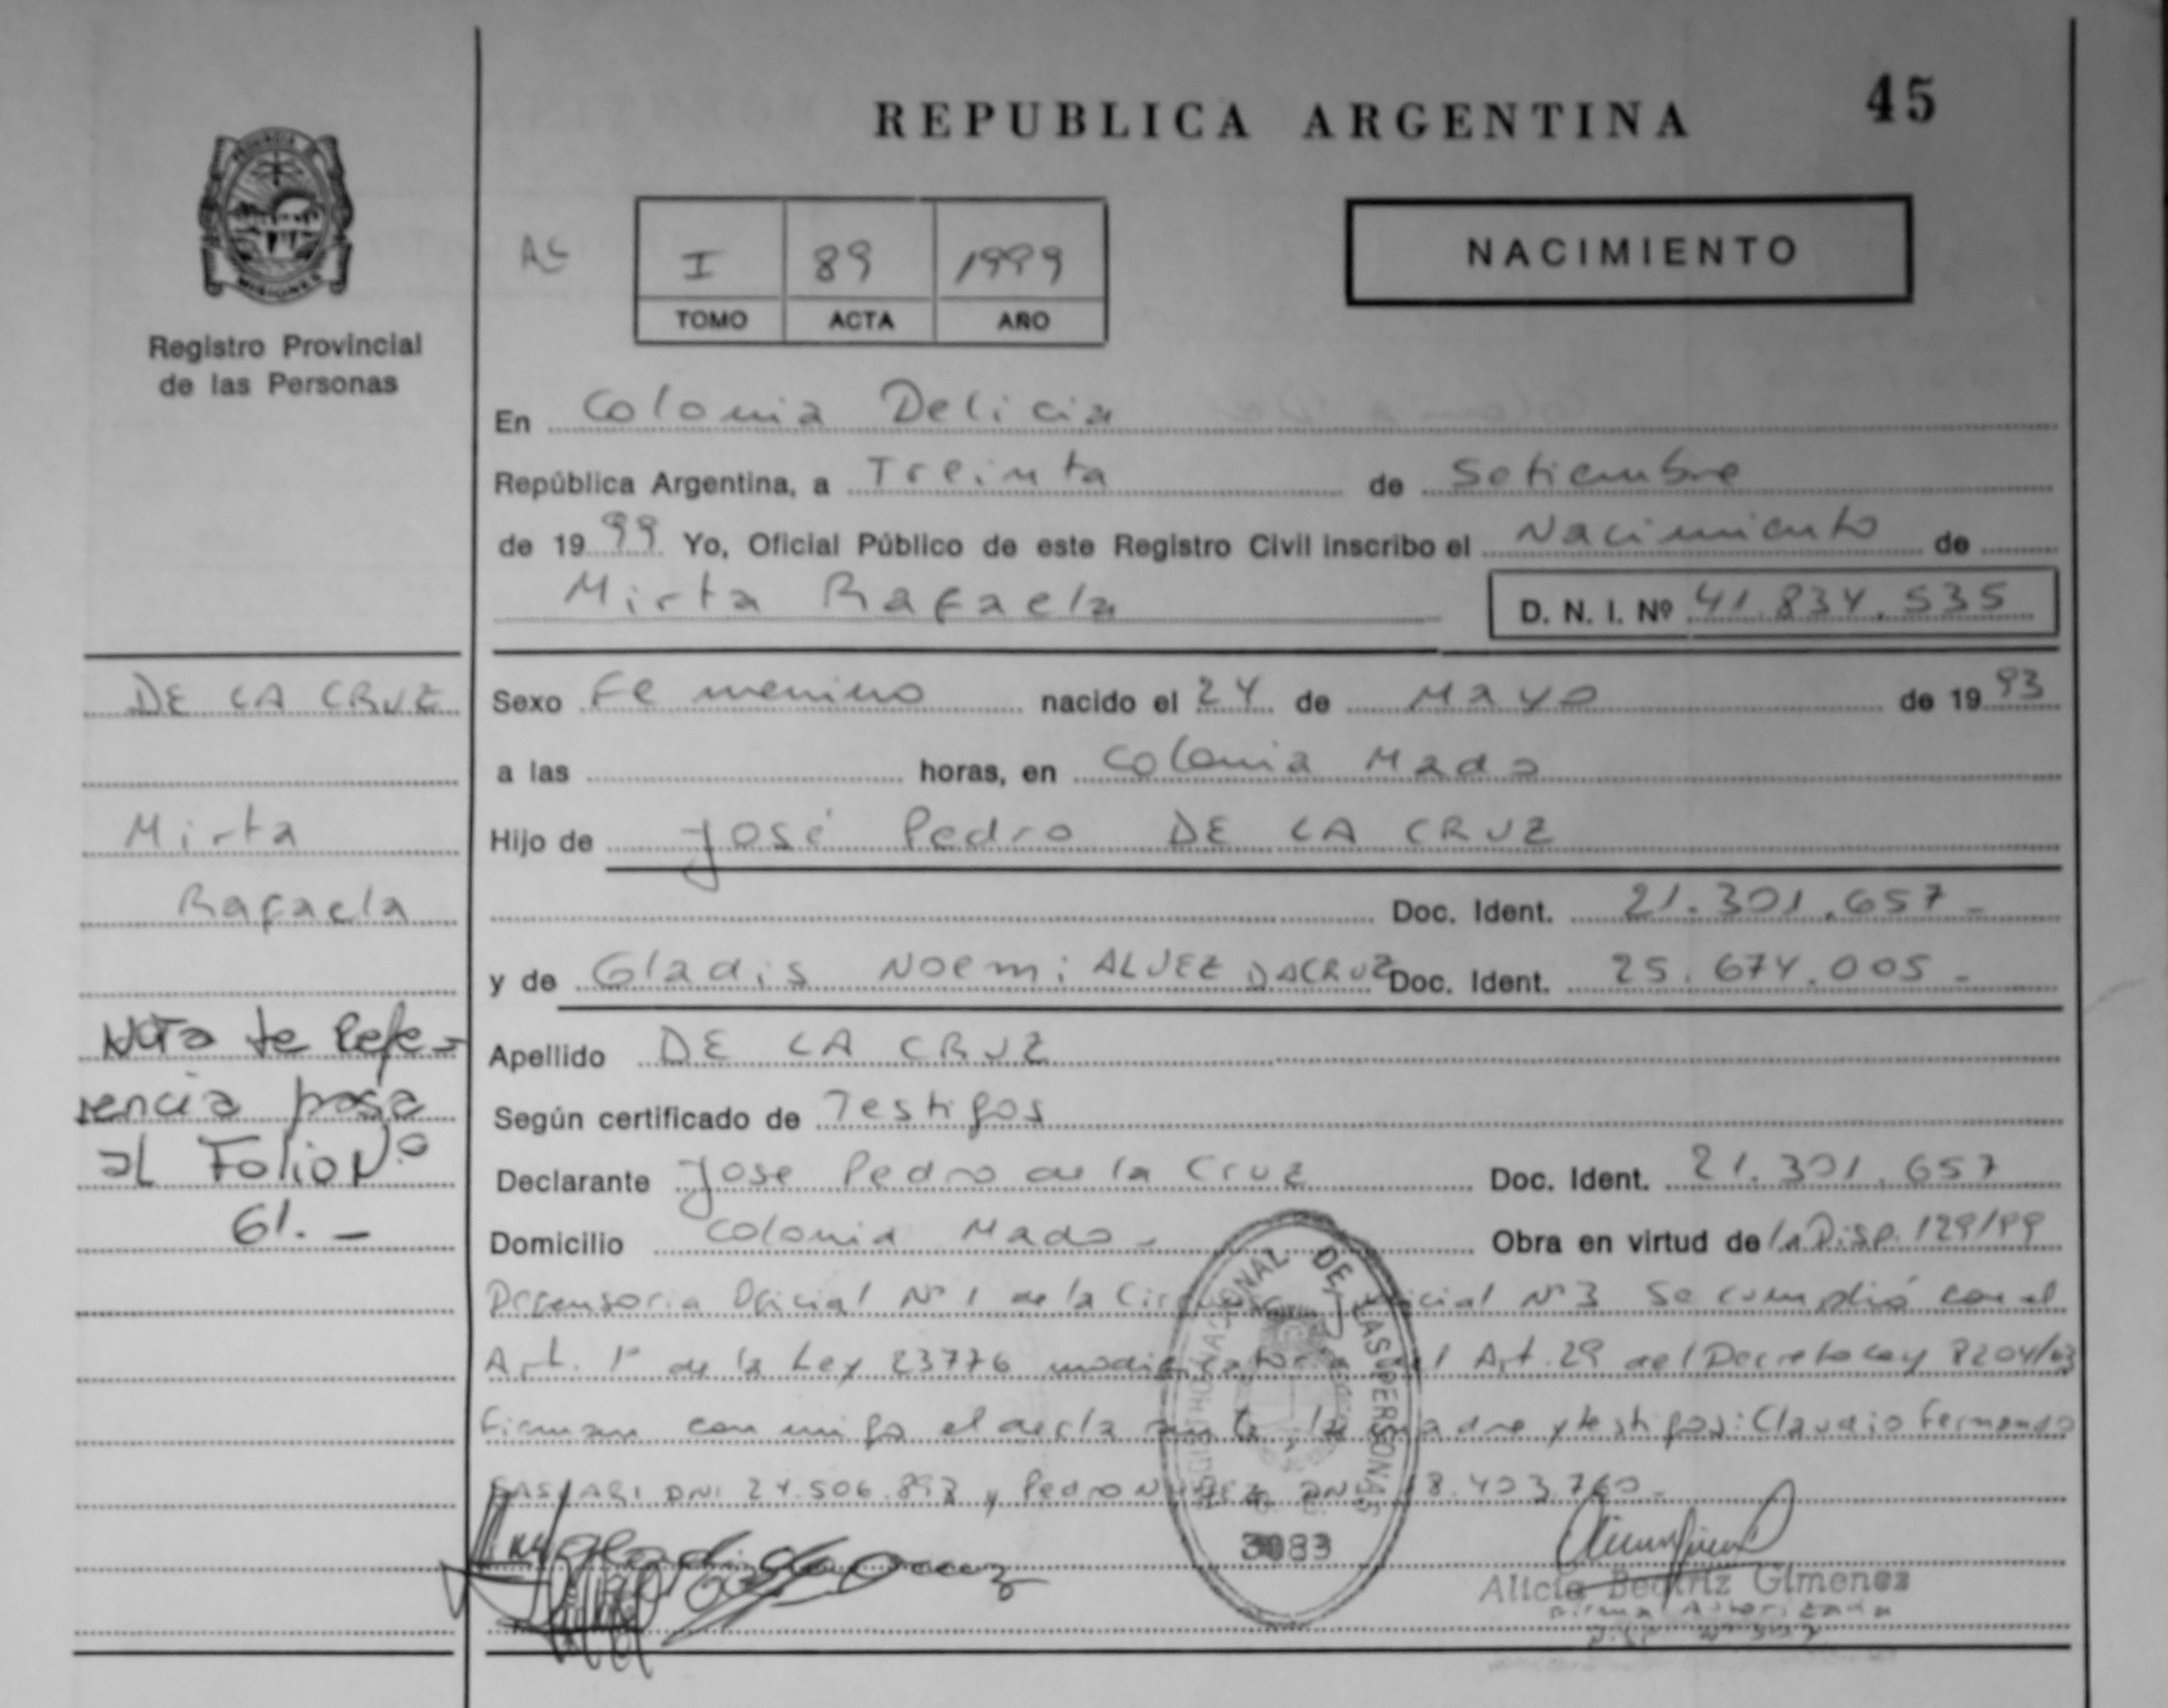 REPUBLICA ARGENTINA 45
PROVINCIA DE
MISIONES
Registro Provincial
de las Personas
NACIMIENTO
I 89 1999
TOMO ACTA AÑO
En Colonia Delicia
República Argentina, a Treinta de Setiembre
de 1999 Yo, Oficial Público de este Registro Civil inscribo el Nacimiento de
Mirta Rafaela D. N. I. Nº 41.834.535
DE LA CRUZ
Mirta
Rafaela
Nota de Refe-
rencia pasa
al Folio Nº
61.-
Sexo Femenino nacido el 24 de Mayo de 1993
a las horas, en Colonia Mado
Hijo de José Pedro DE LA CRUZ
Doc. Ident. 21.301.657-
y de Gladis Noemi ALVEZ DACRUZ Doc. Ident. 25.674.005-
Apellido DE LA CRUZ
Según certificado de Testigos
Declarante Jose Pedro de la Cruz Doc. Ident. 21.301.657
Domicilio Colonia Mado- Obra en virtud de la Disp. 129/99
Defensoria Oficial Nº 1 de la Judicial Nº 3 Se cumplió con el
Art. 1º de la Ley 23776 del Art. 29 del Decreto Ley 8204/63
Firman conmigo el declarante, la madre y testigos: Claudio Fernando
GASPARI DNI 24.506.893 y Pedro DNI 18.403.760-
DE LAS PERSONAS
3083
Alicia Beatriz Gimenez
Firma Autorizada